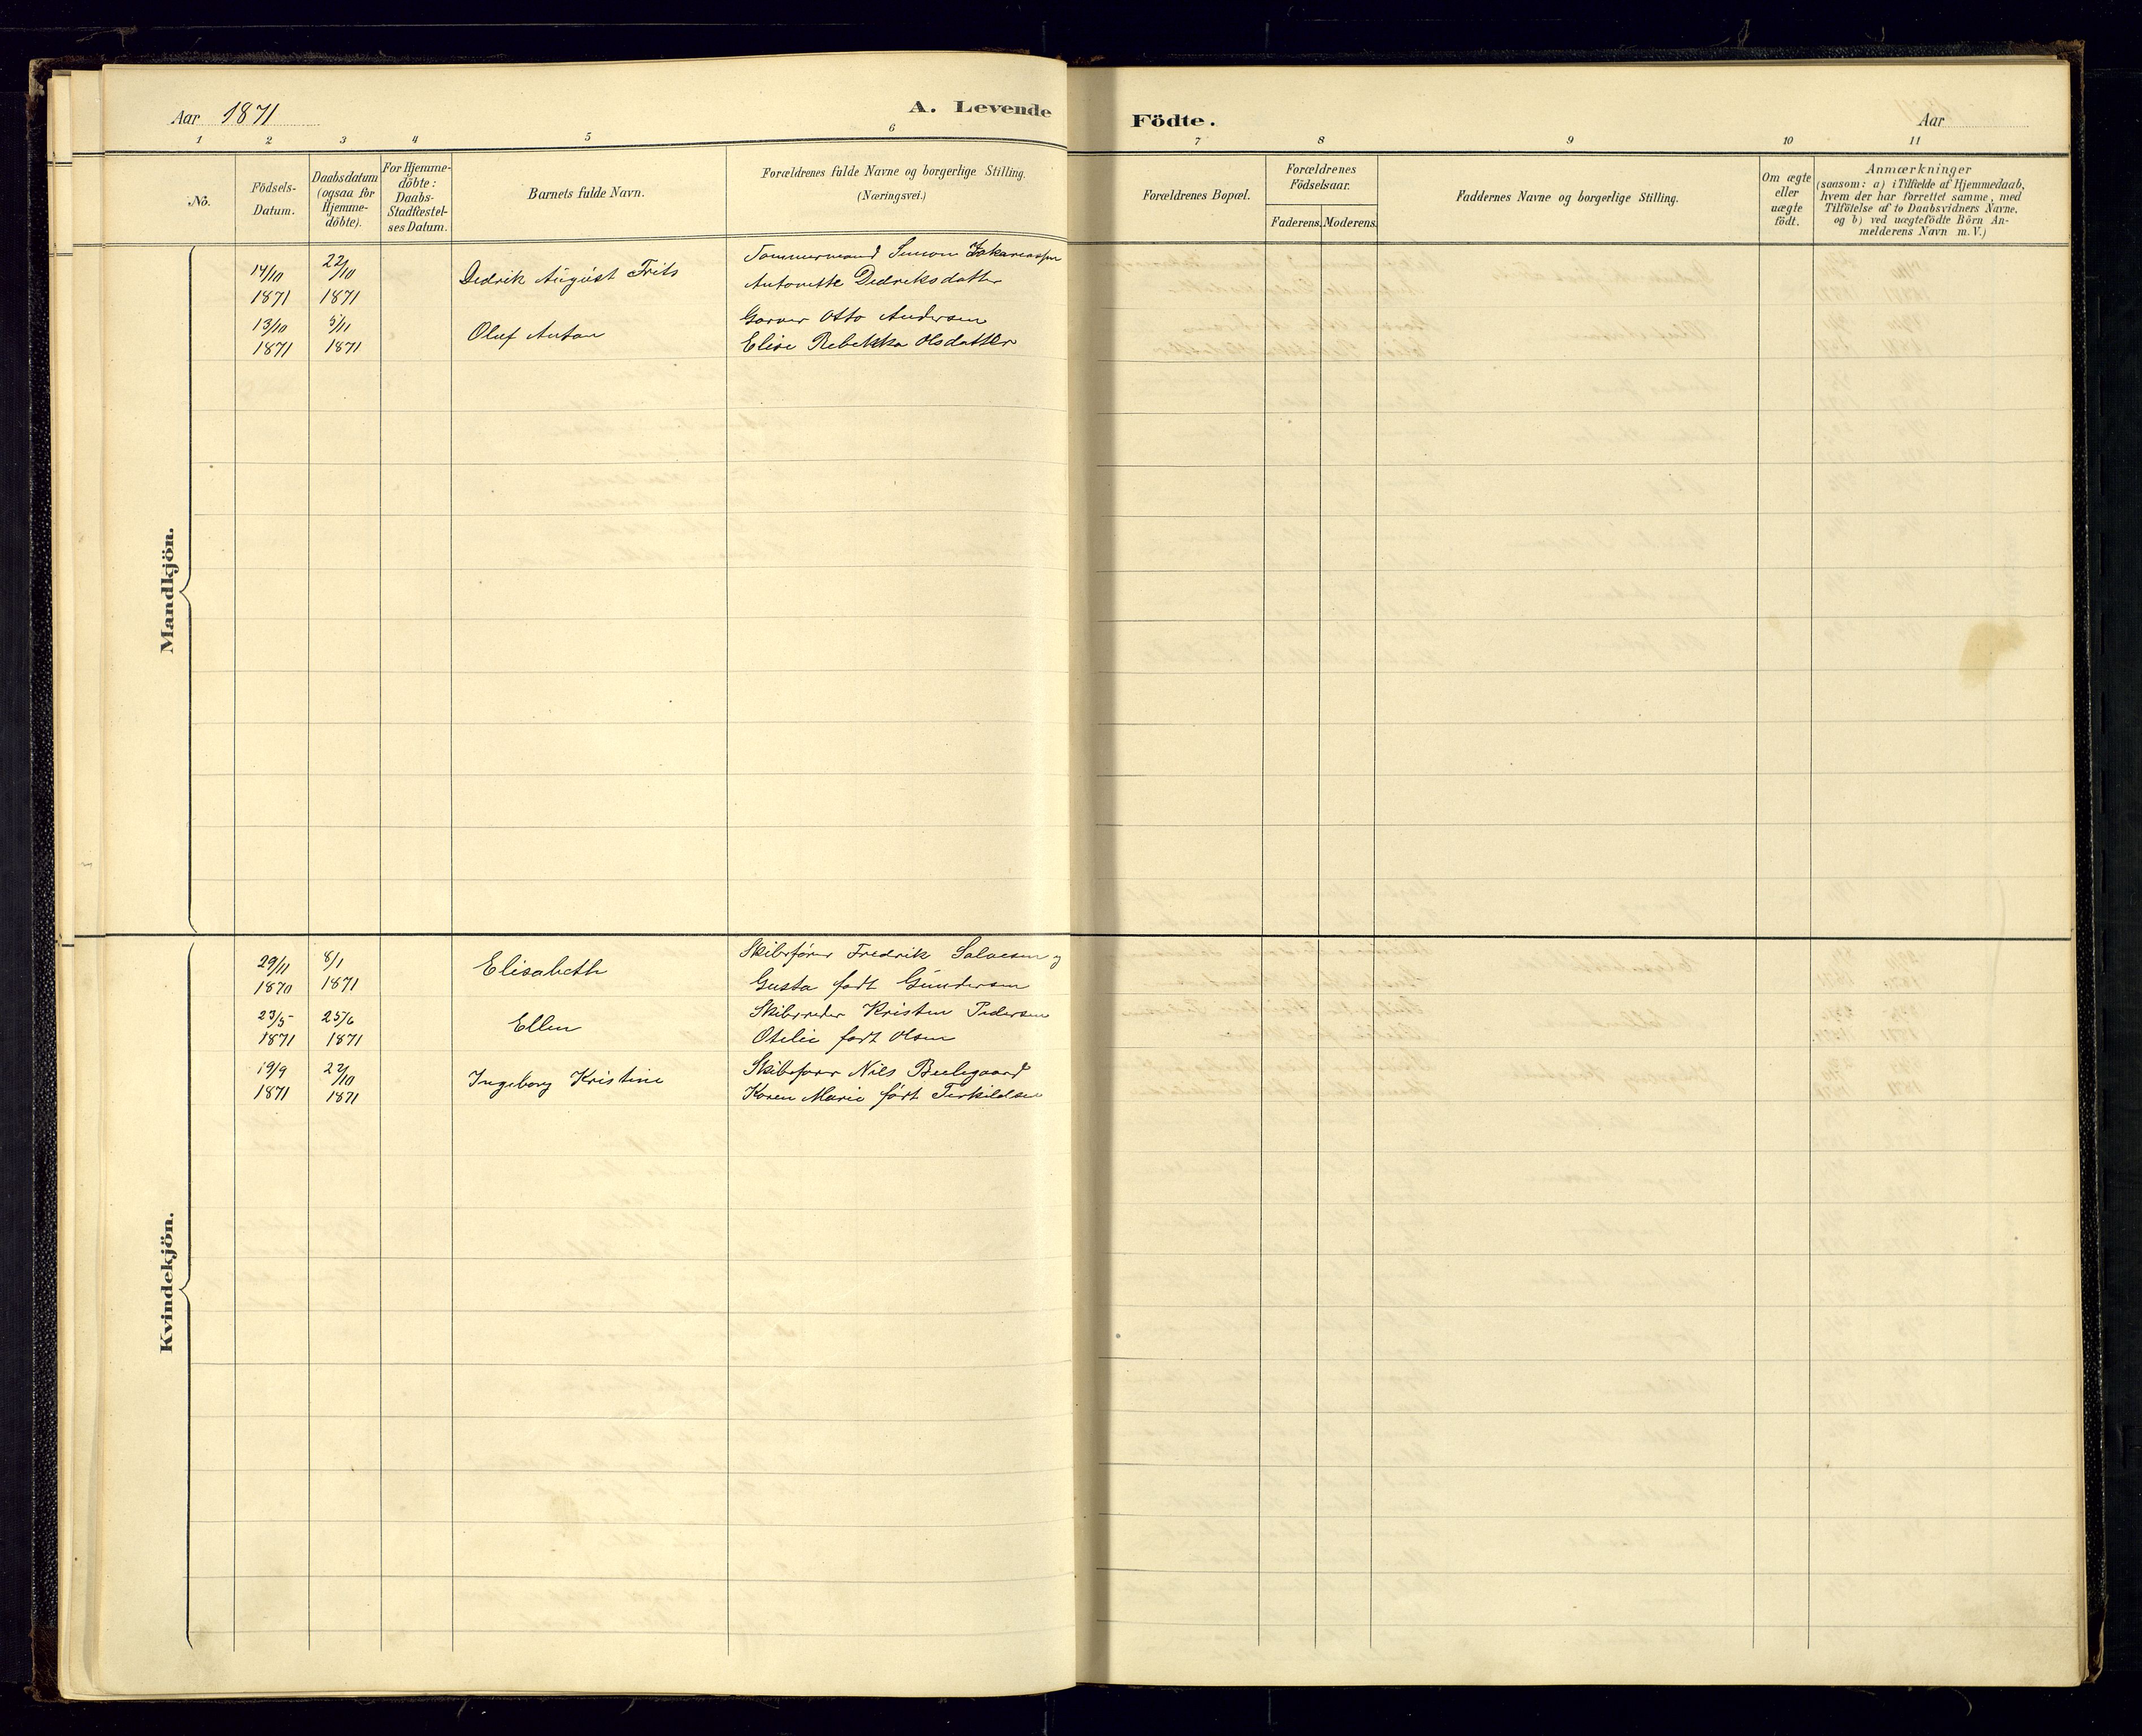 Aar 1871
A. Levende Födte.
Aar
1 2 3 4 5 6 7 8 9 10 11
No.
Födsels-
Datum.
Daabsdatum
(ogsaa för
Hjemme-
döbte).
For Hjemme-
döbte:
Daabs-
Stadfæstel-
ses Datum.
Barnets fulde Navn.
Forældrenes fulde Navne og borgerlige Stilling.
(Næringsvei.)
Forældrenes Bopæl.
Forældrenes
Födselsaar.
Faderens. Moderens.
Faddernes Navne og borgerlige Stilling.
Om ægte
eller
uægte
födt.
Anmærkninger
(saasom: a) i Tilfælde af Hjemmedaab,
hvem der har forrettet samme, med
Tilföielse af to Daabsvidners Navne,
og b) ved uægtefödte Börn An-
melderens Navn m. V.)
Mandkjön.
14/10 1871
22/10 1871
Didrik August Frits
Tømmermand Simon Zakariassen
Antonette Dedreksdatter
13/10 1871
5/11 1871
Oluf Anton
Garver Otto Andersen
Elise Rebekka Olsdatter
Kvindekjön.
29/11 1870
8/1 1871
Elisabeth
Skibsfører Fredrik Salvesen og
Gusta født Gundersen
23/5 1871
25/6 1871
Ellen
Skibsreder Kristen Pedersen
Otelie født Olsen
19/9 1871
22/10 1871
Ingeborg Kristine
Skibsfører Nils
Karen Marie født Terkildsen